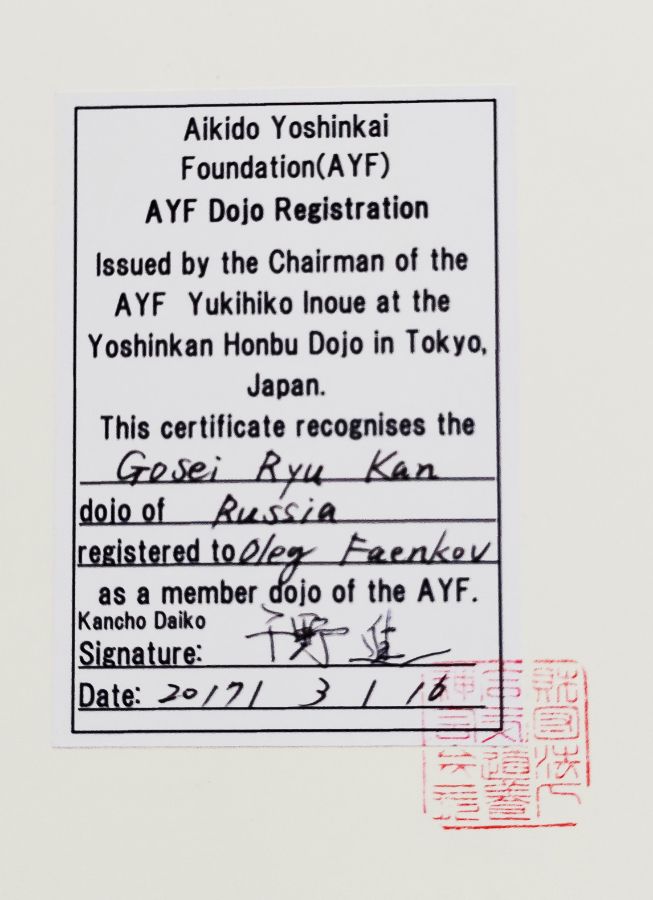 Aikido Yoshinkai
Foundation(AYF)
AYF Dojo Registration
Issued by the Chairman of the
AYF Yukihiko Inoue at the
Yoshinkan Honbu Dojo in Tokyo,
Japan.
This certificate recognises the
Gosei Ryu Kan
dojo of Russia
registered to Oleg Faenkov
as a member dojo of the AYF.
Kancho Daiko
Signature: 千野 進
Date: 2017/ 3 / 16